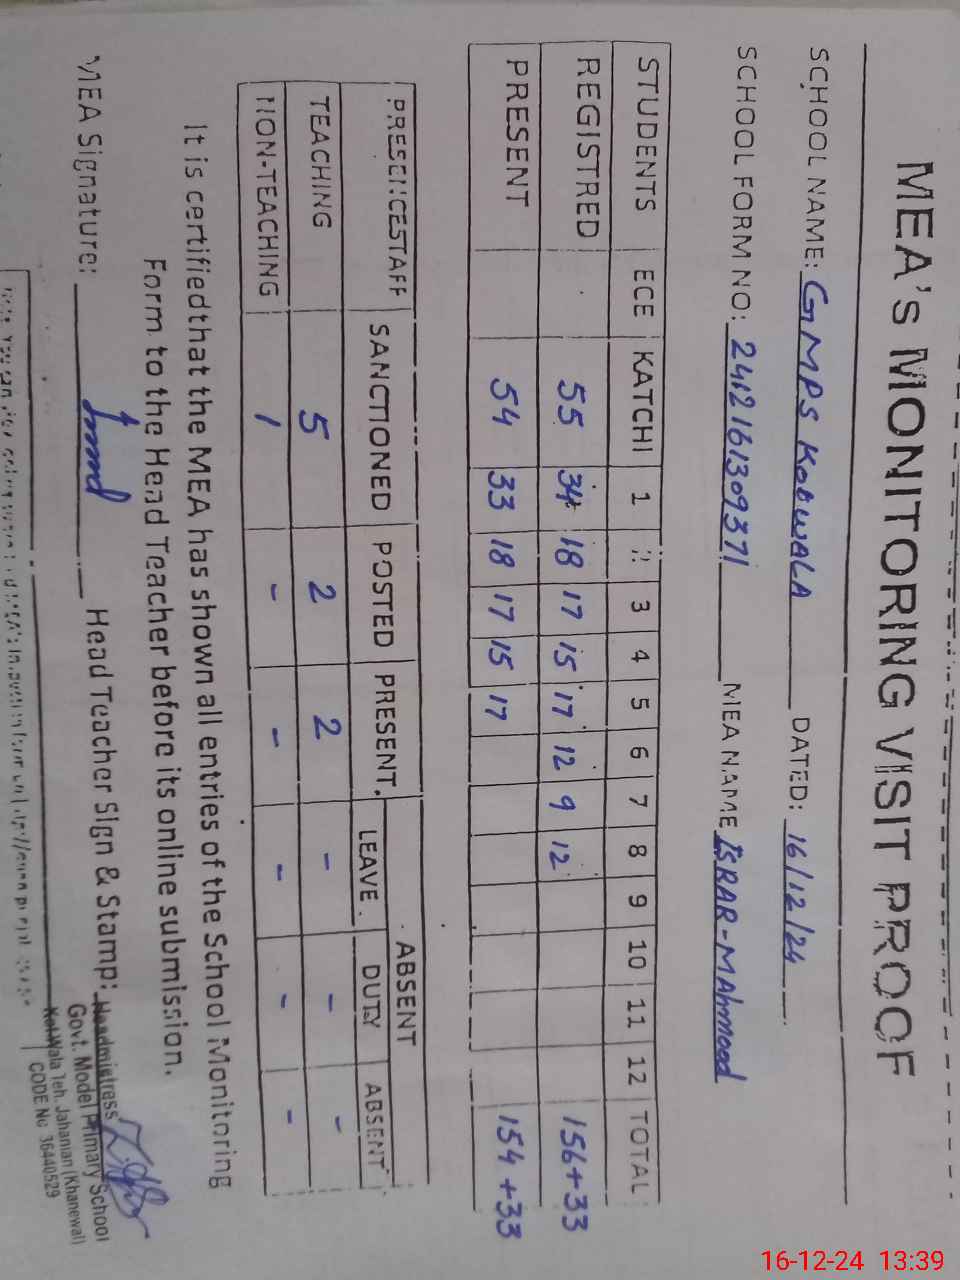 MEA's MONITORING VISIT PROOF
SCHOOL NAME: GMPS KotWALA DATED: 16/12/24
SCHOOL FORM NO: 2412161309371 MEA NAME ISRAR-MAhmood
STUDENTS ECE KATCHI 1 2 3 4 5 6 7 8 9 10 11 12 TOTAL
REGISTRED 55 34 18 17 15 17 12 9 12 156+33
PRESENT 54 33 18 17 15 17 154+33
PRESENCESTAFF SANCTIONED POSTED PRESENT ABSENT
LEAVE DUTY ABSENT
TEACHING 5 2 2 - - -
NON-TEACHING 1 - - - - -
It is certifiedthat the MEA has shown all entries of the School Monitoring
Form to the Head Teacher before its online submission.
MEA Signature: Head Teacher Sign & Stamp:
Headmistress
Govt. Model Primary School
Kot Wala Teh. Jahanian (Khanewal)
CODE No 36440529
16-12-24 13:39